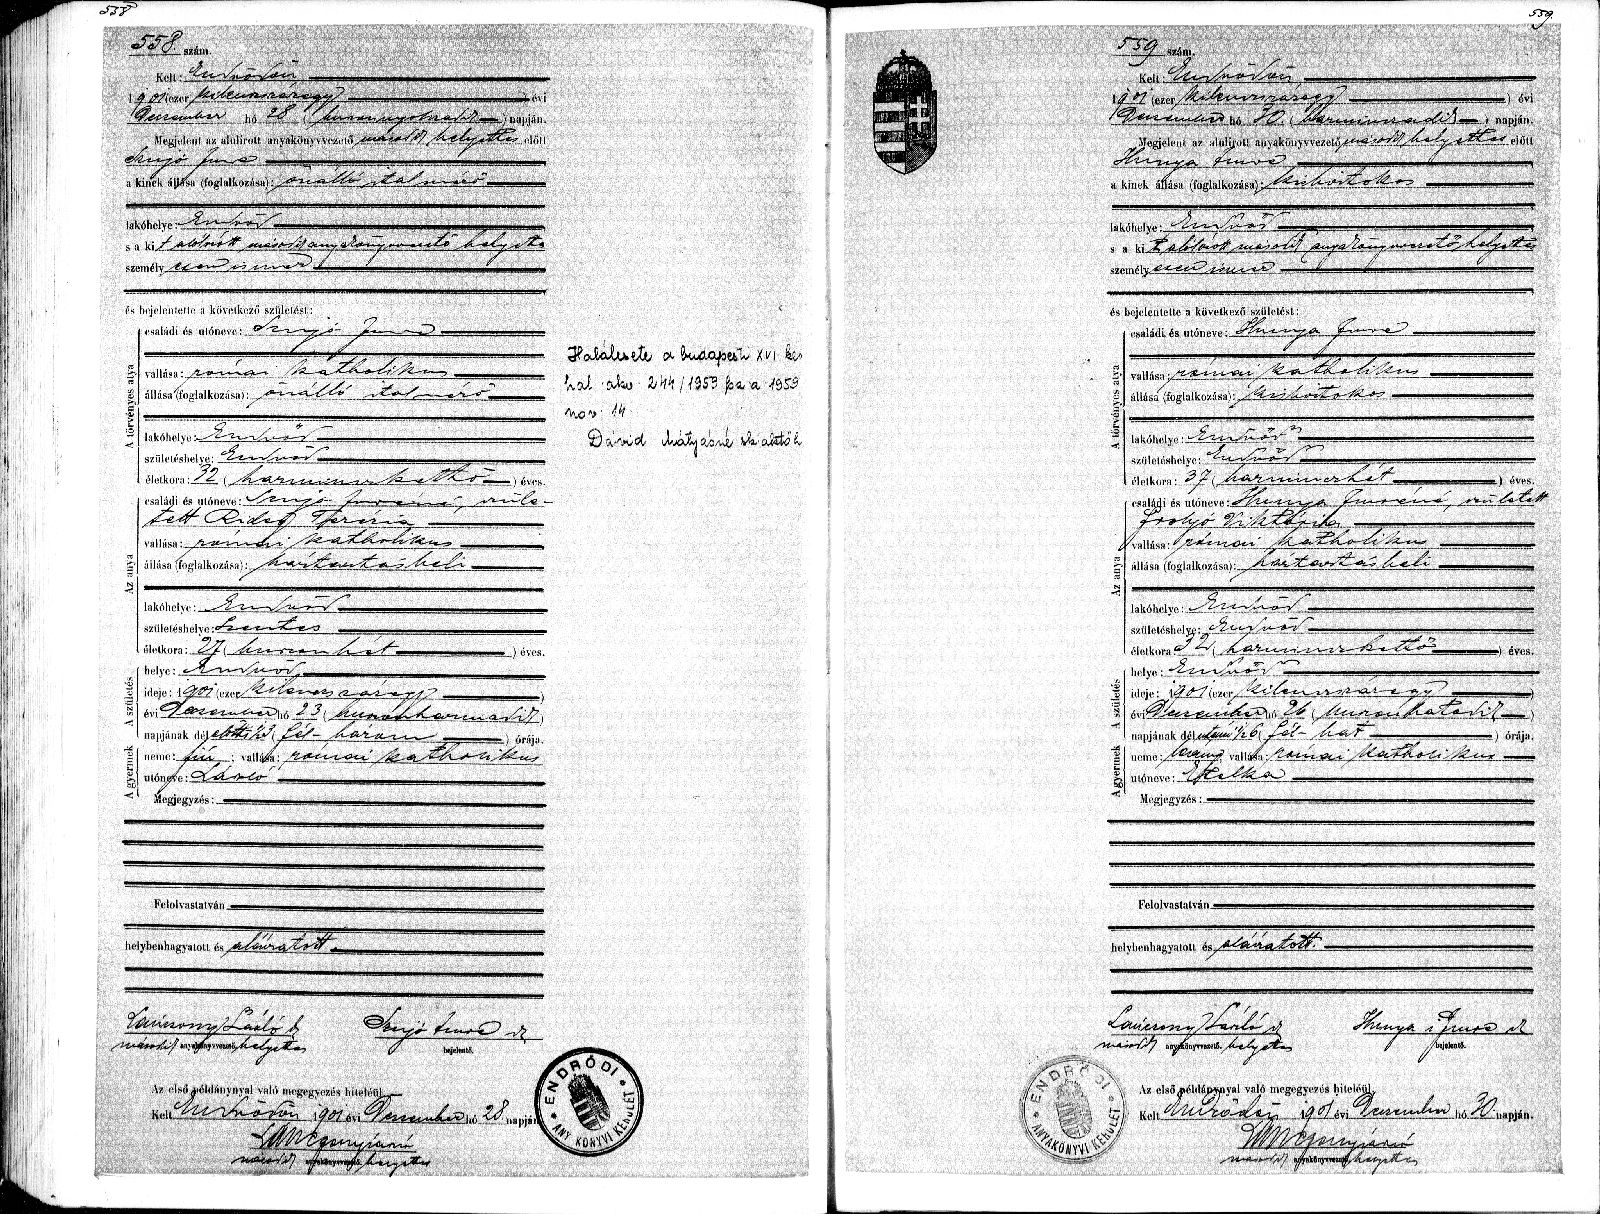 558
558 szám.
Kelt: Endrődön
1901 (ezer kilenczszázegy) évi
Deczember hó 28 (huszonnyolczadik) napján.
Megjelent az alulirott anyakönyvvezető másodk helyettes előtt
Imre
a kinek állása (foglalkozása): önálló italmérő
lakóhelye: Endrőd
s a kit alólirott másodk anyakönyvvezető helyettes
személyesen ismer
és bejelentette a következő születést:
A törvényes atya
családi és utóneve: Imre
vallása: római katholikus
állása (foglalkozása): önálló italmérő
lakóhelye: Endrőd
születéshelye: Endrőd
életkora: 32 (harminczkettő) éves.
Az anya
családi és utóneve: Imréné, szüle-
tett Terézia
vallása: római katholikus
állása (foglalkozása): háztartásbeli
lakóhelye: Endrőd
születéshelye: Szentes
életkora: 27 (huszonhét) éves.
A születés
helye: Endrőd
ideje: 1901 (ezer kilenczszázegy)
évi Deczember hó 23 (huszonharmadik)
napjának délelőtti ½3 (fél-három) órája.
A gyermek
neme: fiú; vallása: római katholikus
utóneve: László
Megjegyzés:
Felolvastatván
helybenhagyatott és aláiratott.
László Imre
másodk anyakönyvvezető helyettes bejelentő.
Az első példánynyal való megegyezés hiteléül
Kelt Endrődön 1901 évi Deczember hó 28 napján
másodk anyakönyvvezető helyettes
ENDRŐDI ANYAKÖNYVI KERÜLET
Halálesete a budapesti XVI ker
hal. akv 244/1959 fsz a 1959
nov. 14.
Dávid Mátyásné
559
559 szám.
Kelt: Endrődön
1901 (ezer kilenczszázegy) évi
Deczember hó 30 (harminczadik) napján.
Megjelent az alulirott anyakönyvvezető másodk helyettes előtt
Hunya Imre
a kinek állása (foglalkozása): kisbirtokos
lakóhelye: Endrőd
s a kit alólirott másodk anyakönyvvezető helyettes
személyesen ismer
és bejelentette a következő születést:
A törvényes atya
családi és utóneve: Hunya Imre
vallása: római katholikus
állása (foglalkozása): kisbirtokos
lakóhelye: Endrőd
születéshelye: Endrőd
életkora: 37 (harminczhét) éves.
Az anya
családi és utóneve: Hunya Imréné, született
Viktória
vallása: római katholikus
állása (foglalkozása): háztartásbeli
lakóhelye: Endrőd
születéshelye: Endrőd
életkora 32 (harminczkettő) éves.
A születés
helye: Endrőd
ideje: 1901 (ezer kilenczszázegy)
évi Deczember hó 26 (huszonhatodik)
napjának délutáni ½6 (fél-hat) órája.
A gyermek
neme: leány vallása: római katholikus
utóneve: Etelka
Megjegyzés:
Felolvastatván
helybenhagyatott és aláiratott.
László Hunya Imre
másodk anyakönyvvezető helyettes bejelentő.
Az első példánynyal való megegyezés hiteléül
Kelt Endrődön 1901 évi Deczember hó 30 napján.
másodk anyakönyvvezető helyettes
ENDRŐDI ANYAKÖNYVI KERÜLET